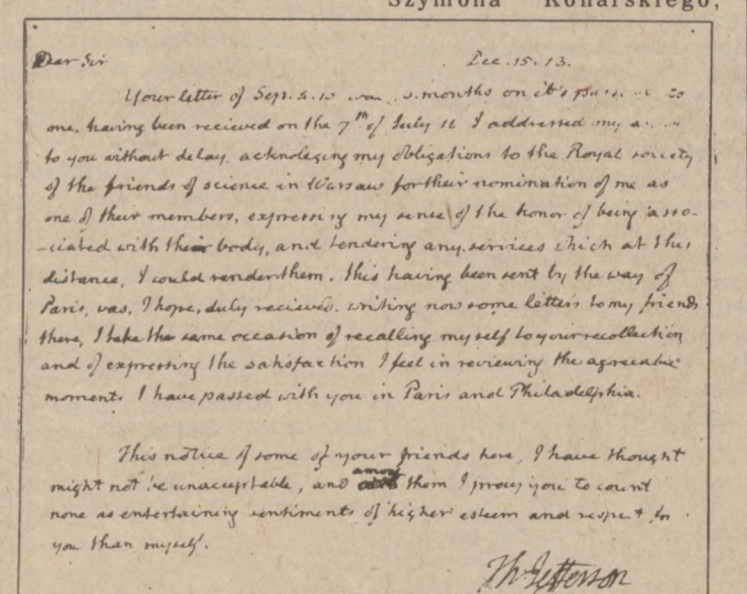 Szymona Konarskiego,
Dear Sir Dec. 15. 13.
Your letter of Sep. 2. 10 was months on it's to
me, having been recieved on the 7th of July 11 I addressed my
to you without delay, acknoleging my obligations to the Royal society
of the friends of science in Warsaw for their nomination of me as
one of their members, expressing my sense of the honor of being asso-
-ciated with their body, and tendering any services which at this
distance, I could render them. this having been sent by the way of
Paris, was, I hope, duly recieved. writing now some letters to my friends
there, I take the same occasion of recalling myself to your recollection
and of expressing the satisfaction I feel in reviewing the agreeable
moments I have passed with you in Paris and Philadelphia.
This notice of some of your friends here, I have thought
might not be unacceptable, and among them I pray you to count
none as entertaining sentiments of higher esteem and respect for
you than myself.
Th Jefferson